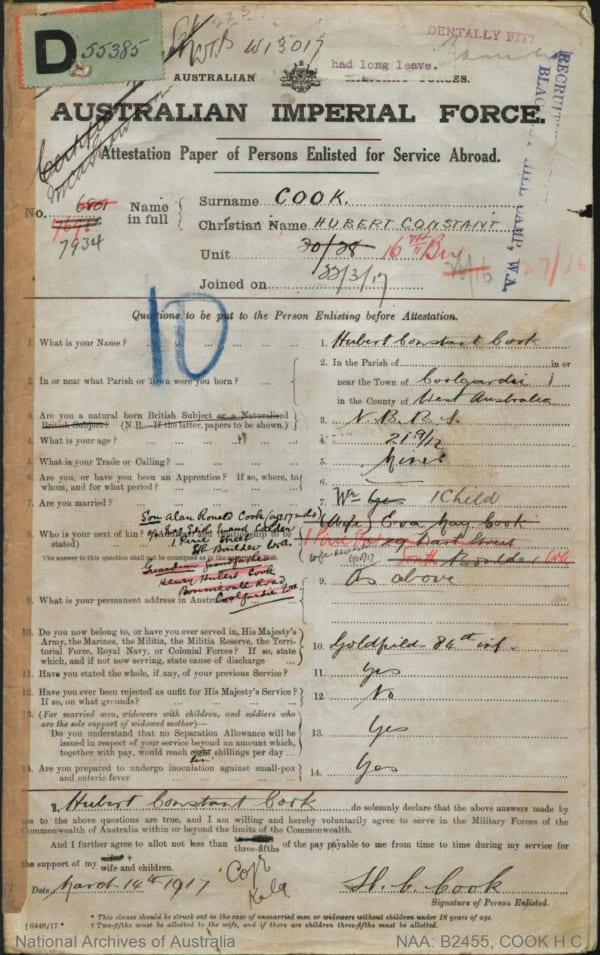 D 55385
W13017
DENTALLY FIT
had long leave.
AUSTRALIAN MILITARY FORCES.
AUSTRALIAN IMPERIAL FORCE.
Attestation Paper of Persons Enlisted for Service Abroad.
No. 7934
Name in full
Surname COOK.
Christian Name HUBERT CONSTANT
Unit 30/28 16
Joined on 22/3/17
27/16
10
Questions to be put to the Person Enlisting before Attestation.
1. What is your Name? 1. Hubert Constant Cook
2. In or near what Parish or Town were you born? 2. In the Parish of in or
near the Town of Coolgardie
in the County of West Australia
3. Are you a natural born British Subject or a Naturalised
British Subject? (N.B.—If the latter, papers to be shown.) 3. N.B.B.S.
4. What is your age? 4. 21 9/12
5. What is your Trade or Calling? 5. Miner
6. Are you, or have you been an Apprentice? If so, where, to
whom, and for what period? 6.
7. Are you married? 7. Wr Yes 1 Child
Son Alan Ronald Cook
1 Piric Street
Sth Boulder W.A.
8. Who is your next of kin? (Wife) Eva May Cook
stated)
South Boulder WA
The answer to this question shall not be construed as in the
Guardian Grandfather
Henry Hubert Cook
Bonnievale Road
Coolgardie W.A.
9. What is your permanent address in Australia? 9. As above
10. Do you now belong to, or have you ever served in, His Majesty's
Army, the Marines, the Militia, the Militia Reserve, the Terri-
torial Force, Royal Navy, or Colonial Forces? If so, state
which, and if not now serving, state cause of discharge 10. Goldfields 84th inf.
11. Have you stated the whole, if any, of your previous Service? 11. Yes
12. Have you ever been rejected as unfit for His Majesty's Service?
If so, on what grounds? 12. No
13. (For married men, widowers with children, and soldiers who
are the sole support of widowed mother)—
Do you understand that no Separation Allowance will be
issued in respect of your service beyond an amount which,
together with pay, would reach eight shillings per day 13. Yes
ten
14. Are you prepared to undergo inoculation against small-pox
and enteric fever 14. Yes
I, Hubert Constant Cook do solemnly declare that the above answers made by
me to the above questions are true, and I am willing and hereby voluntarily agree to serve in the Military Forces of the
Commonwealth of Australia within or beyond the limits of the Commonwealth.
And I further agree to allot not less than three-fifths of the pay payable to me from time to time during my service for
the support of my wife and children.
Date March 14th 1917
H. C. Cook
Signature of Person Enlisted.
* This clause should be struck out in the case of unmarried men or widowers without children under 18 years of age.
† Two-fifths must be allotted to the wife, and if there are children three-fifths must be allotted.
National Archives of Australia
NAA: B2455, COOK H C